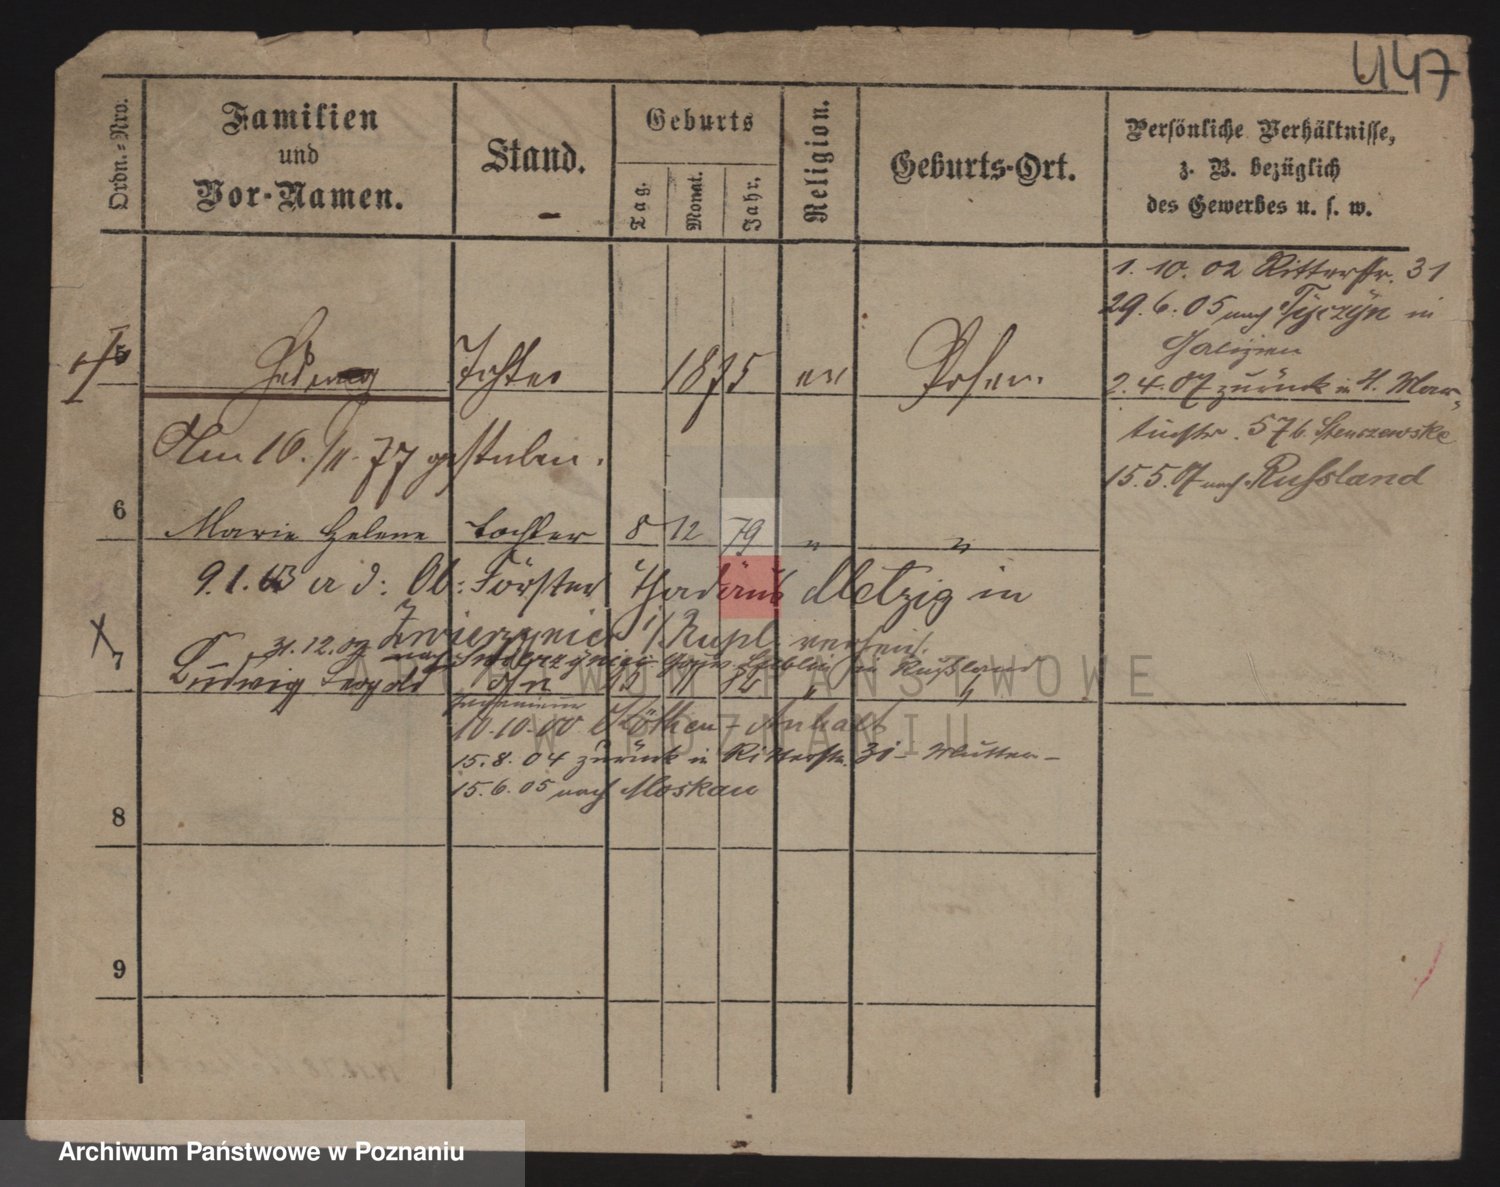 447
Ordn.-Nro.
Familien
und
Vor-Namen.
Stand.
Geburts
Tag.
Monat.
Jahr.
Religion.
Geburts-Ort.
Persönliche Verhältnisse,
z. B. bezüglich
des Gewerbes u. s. w.
5 Hedwig Tochter 1875 ev Posen.
Am 16./11.77 gestorben.
6 Marie Helene Tochter 8 12 79 " "
9.1. a d: Ob: Förster Thadäus Metzig in
Zwierzyniec / Rupl. verheir.
31.12.09 nach Gouv. Lublin in Russland
7 Ludwig Leopold Sohn 15 11 82 " "
10.10.00 Köthen - Anhalt
15.8.04 zurück in Ritterstr. 31 - Mutter -
15.6.05 nach Moskau
8
9
1.10.02 Ritterstr. 31
29.6.05 nach Tyczyn in
Galizien
2.4.07 zurück in St. Mar-
tinstr. 57 b.
15.5.07 nach Russland
ARCHIWUM PAŃSTWOWE
W POZNANIU
Archiwum Państwowe w Poznaniu